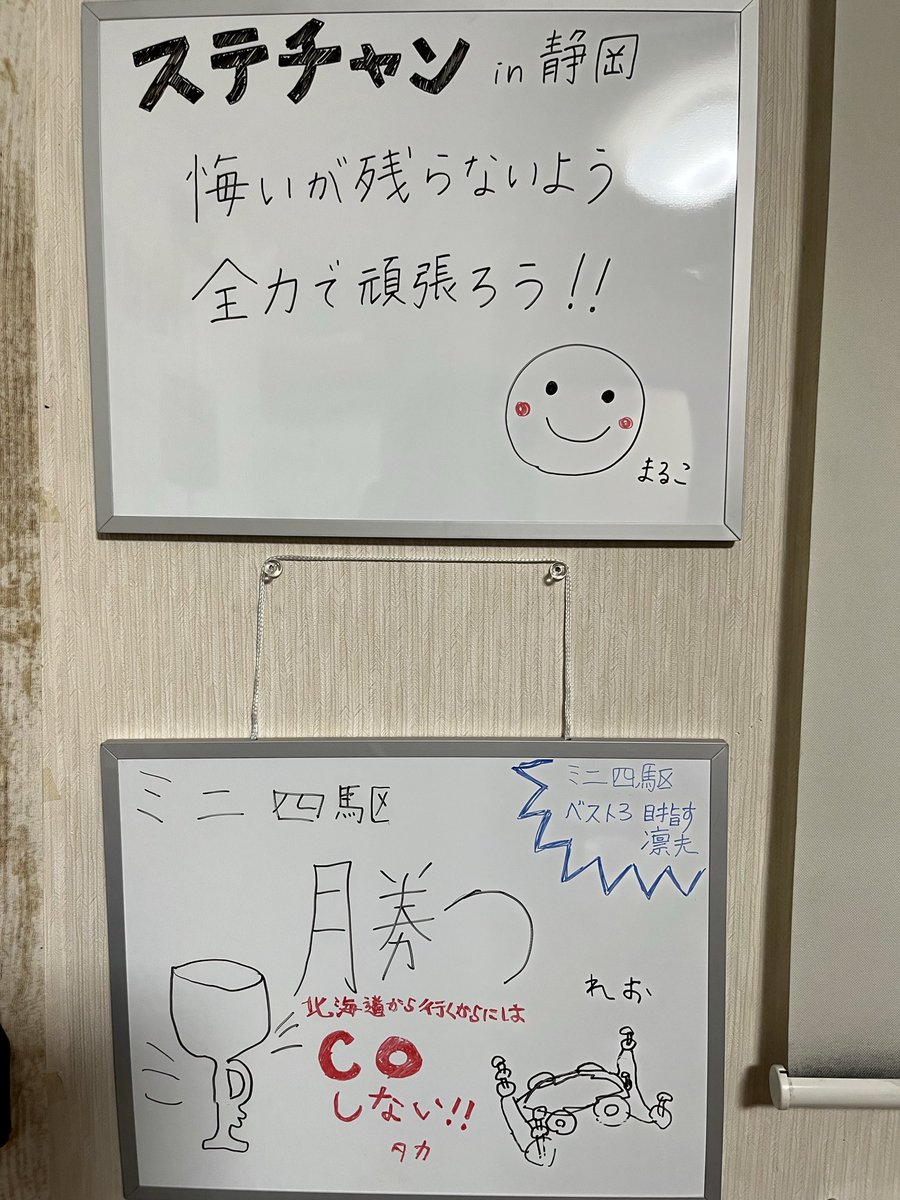 ステチャン in 静岡
悔いが残らないよう
全力で頑張ろう!!
まるこ
ミニ四駆
ミニ四駆
ベスト3 目指す
凛夫
勝つ
れお
北海道から行くからには
CO
しない!!
タカ